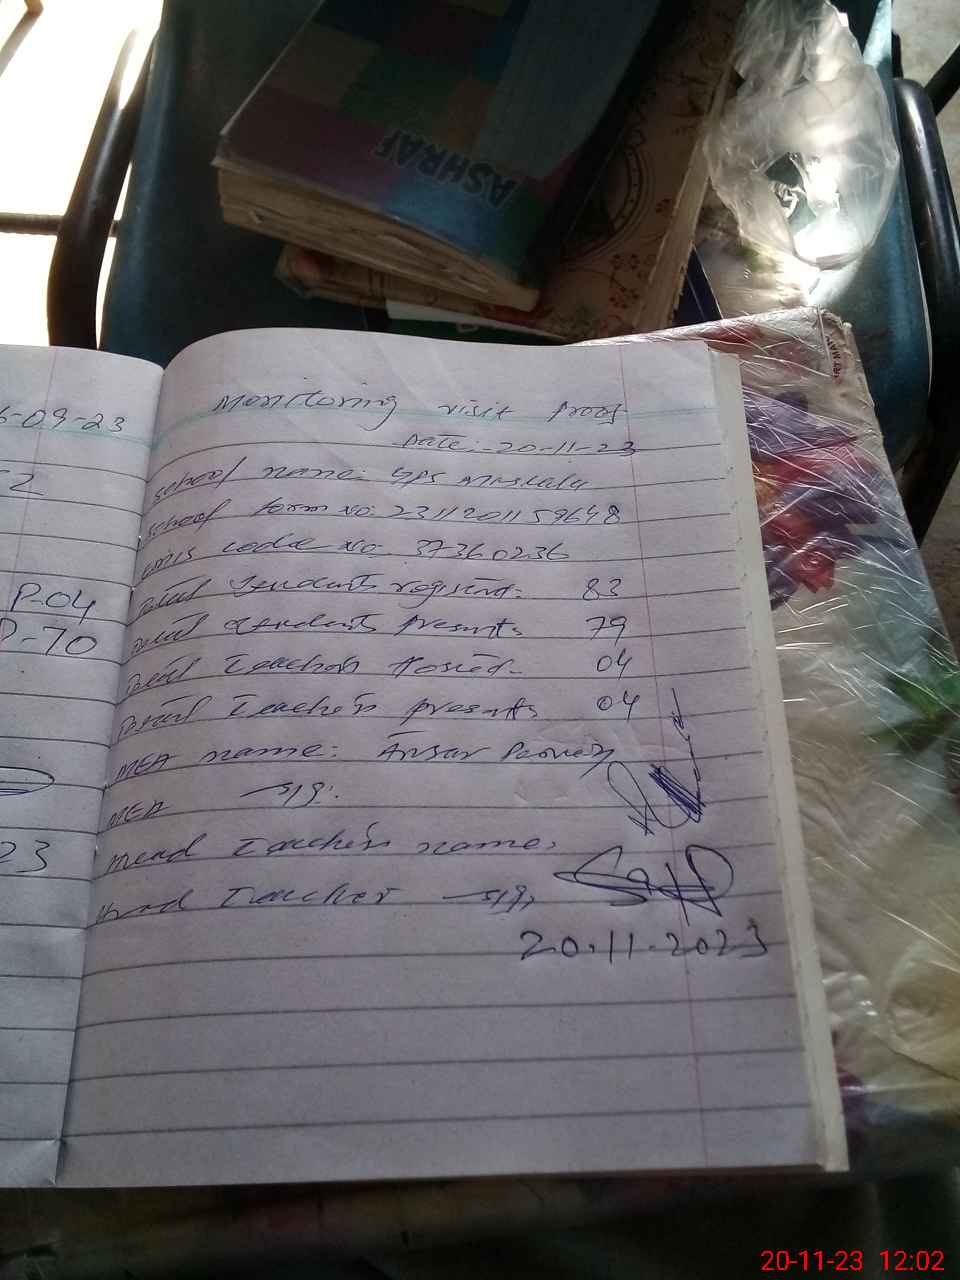 ASHRAF
6-09-23
2
P-04
P-70
23
Monitoring visit proof
Date:-20-11-23
school name: GPS
school form no: 2311201159648
emis code no. 37360236
Total students registerd: 83
Total students presents 79
Total Teachers Posted- 04
Total Teachers presents 04
MEA name: Ansar Parvez
MEA sig:
Head Teacher name:
Head Teacher sig:
20.11.2023
20-11-23 12:02